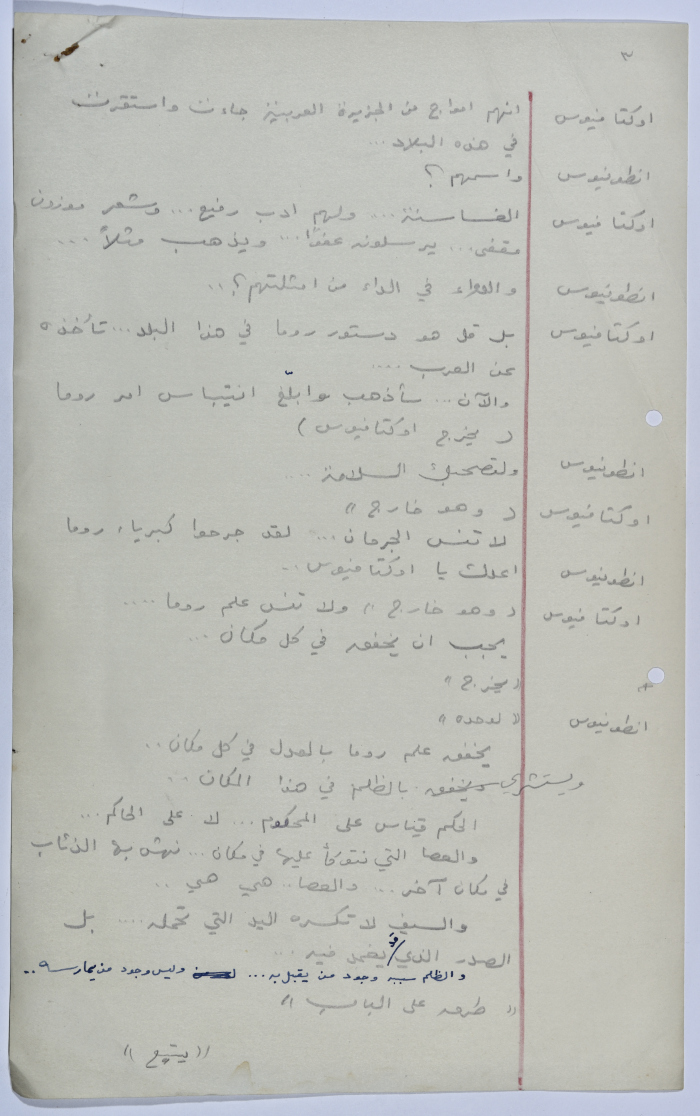 ٣
اوكتافيوس انهم امواج من الجزيرة العربية جاءت واستقرت
في هذه البلاد ...
انطونيوس واسمهم ؟
اوكتافيوس الغساسنة .... ولهم ادب رفيع ... وشعر موزون
مقفى .... يرسلونه عفوًا ... ويذهب مثلاً ....
انطونيوس والدواء في الداء من امثلتهم ؟ ..
اوكتافيوس بل قل هو دستور روما في هذا البلد ... تأخذه
عن العرب ....
والآن ... سأذهب وابلّغ انتيباس امر روما
( يخرج اوكتافيوس )
انطونيوس ولتصحبك السلامة ....
اوكتافيوس ( وهو خارج ))
لا تنس الجرحان ... لقد جرحوا كبرياء روما
انطونيوس اعدك يا اوكتافيوس ..
اوكتافيوس ( وهو خارج )) ولا تنس علم روما ....
يجب ان يخفق في كل مكان ...
(( يخرج ))
انطونيوس (( لوحده ))
يخفق علم روما بالعدل في كل مكان ..
ويستشري ويخفق بالظلم في هذا المكان ..
الحكم يقاس على المحكوم ... لا على الحاكم ...
والعصا التي نتوكأ عليها في مكان ... نهش بها الذئاب
في مكان آخر .... والعصا .. هي هي ..
والسيف لا تكسره اليد التي تحمله .... بل
الصدر الذي قد يغمد فيه ....
والظلم سببه وجود من يقبل به ... وليس وجود من يمارسه ..
(( طرق على الباب ))
(( يتبع ))